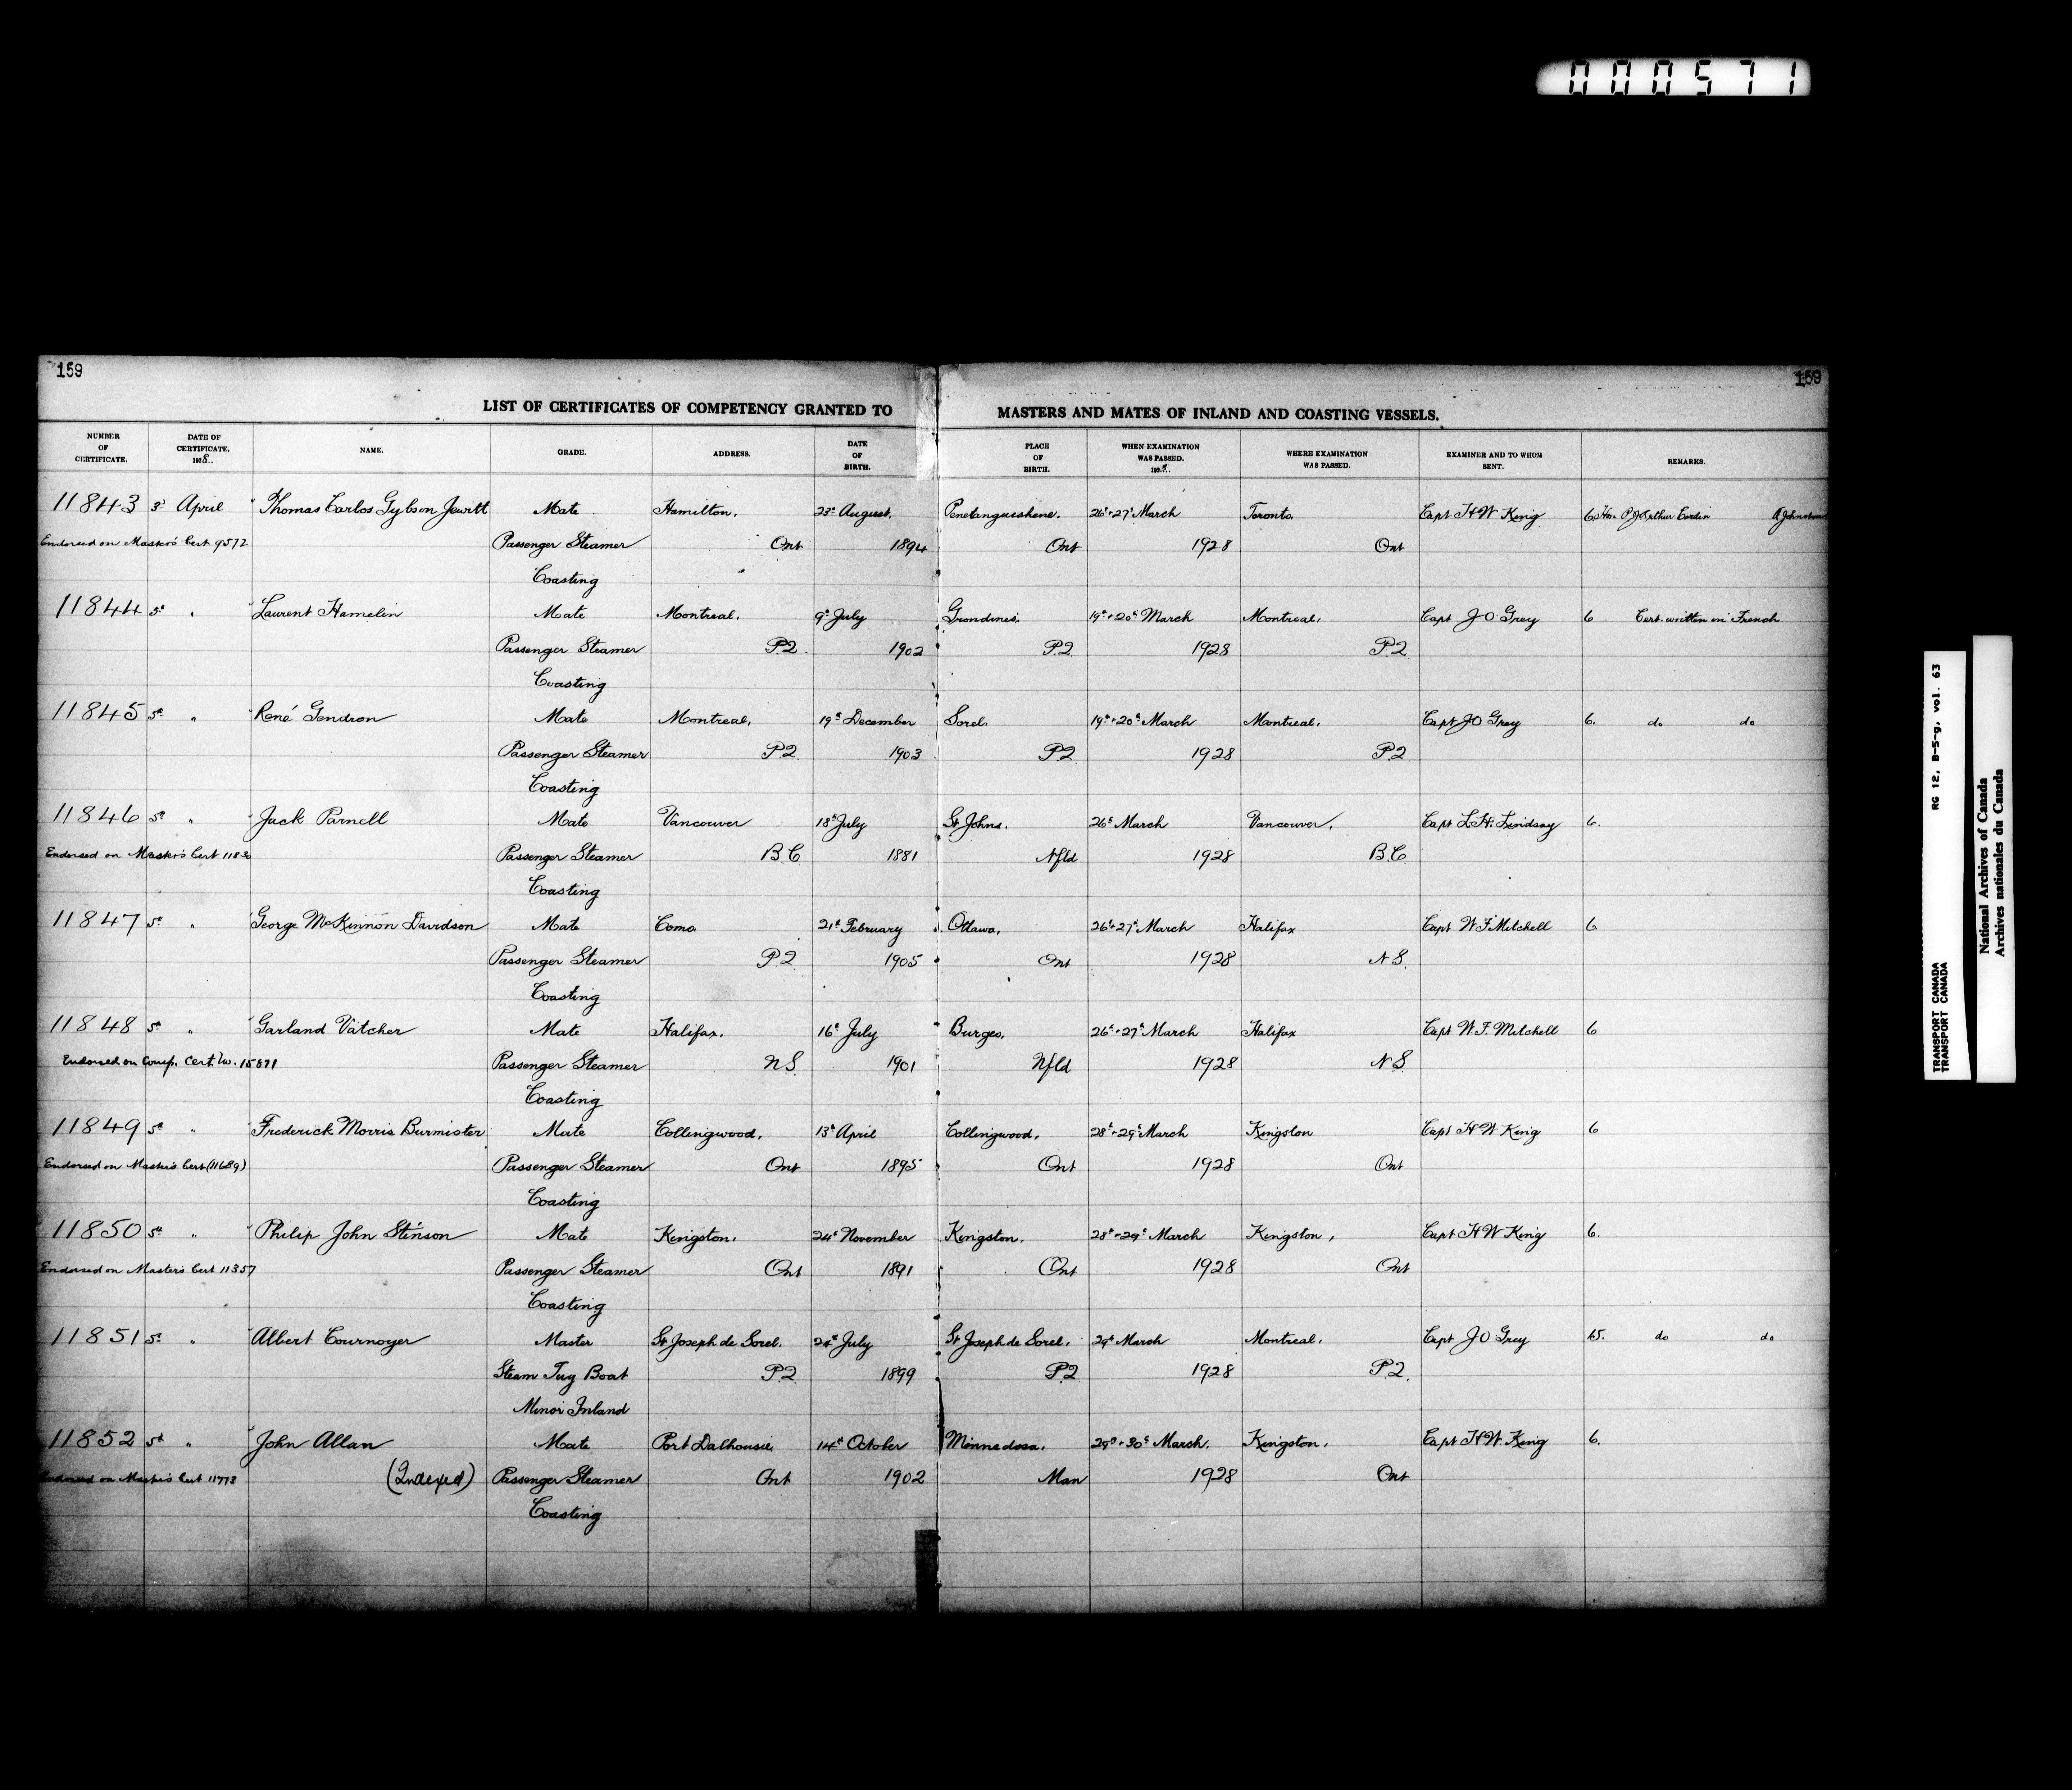 000571
159
159
LIST OF CERTIFICATES OF COMPETENCY GRANTED TO MASTERS AND MATES OF INLAND AND COASTING VESSELS.
NUMBER OF CERTIFICATE. DATE OF CERTIFICATE. 1928.. NAME. GRADE. ADDRESS. DATE OF BIRTH. PLACE OF BIRTH. WHEN EXAMINATION WAS PASSED. WHERE EXAMINATION WAS PASSED. EXAMINER AND TO WHOM SENT. REMARKS.
11843 3d April Thomas Carlos Gybson Jewitt Mate Hamilton. 23d August. Penetanguishene. 26th+27th March Toronto. Capt H W King 6 Hon. P.J. Arthur Cardin A Johnston
Endorsed on Master's Cert 9572 Passenger Steamer Ont 1894 Ont 1928 Ont
Coasting
11844 5th " Laurent Hamelin Mate Montreal. 9th July Grondines. 19th+20th March Montreal. Capt J O Grey 6 Cert. written in French
Passenger Steamer P.Q. 1902 P.Q. 1928 P.Q.
Coasting
11845 5th " René Gendron Mate Montreal. 19th December Sorel. 19th+20th March Montreal. Capt J O Grey 6. do do
Passenger Steamer P.Q. 1903 P.Q. 1928 P.Q.
Coasting
11846 5th " Jack Parnell Mate Vancouver 18th July St Johns. 26th March Vancouver. Capt L.H. Lindsay 6.
Endorsed on Master's Cert Passenger Steamer B.C. 1881 Nfld 1928 B.C.
Coasting
11847 5th " George McKinnon Davidson Mate Como. 21st February Ottawa. 26th+27th March Halifax Capt W F Mitchell 6
Passenger Steamer P.Q. 1905 Ont 1928 N.S.
Coasting
11848 5th " Garland Vatcher Mate Halifax. 16th July Burgeo. 26th+27th March Halifax Capt W. F. Mitchell 6
Endorsed on Comp. Cert. No. 15871 Passenger Steamer N.S. 1901 Nfld 1928 N.S
Coasting
11849 5th " Frederick Morris Burmister Mate Collingwood. 13th April Collingwood. 28th+29th March Kingston Capt H W King 6
Endorsed on Master's Cert (11689) Passenger Steamer Ont 1895 Ont 1928 Ont
Coasting
11850 5th " Philip John Stinson Mate Kingston. 24th November Kingston. 28th+29th March Kingston, Capt H W King 6.
Endorsed on Master's Cert 11357 Passenger Steamer Ont 1891 Ont 1928 Ont
Coasting
11851 5th " Albert Cournoyer Master St Joseph de Sorel. 24th July St Joseph de Sorel. 29th March Montreal. Capt J O Grey 15. do do
Steam Tug Boat P.Q. 1899 P.Q. 1928 P.Q.
Minor Inland
11852 5th " John Allan Mate Port Dalhousie. 14th October Minnedosa. 29th+30th March. Kingston. Capt H W. King 6.
Endorsed on Master's Cert 11773 (Indexed) Passenger Steamer Ont 1902 Man 1928 Ont
Coasting
TRANSPORT CANADA RG 12, B-5-g, vol. 63
TRANSPORT CANADA
National Archives of Canada
Archives nationales du Canada